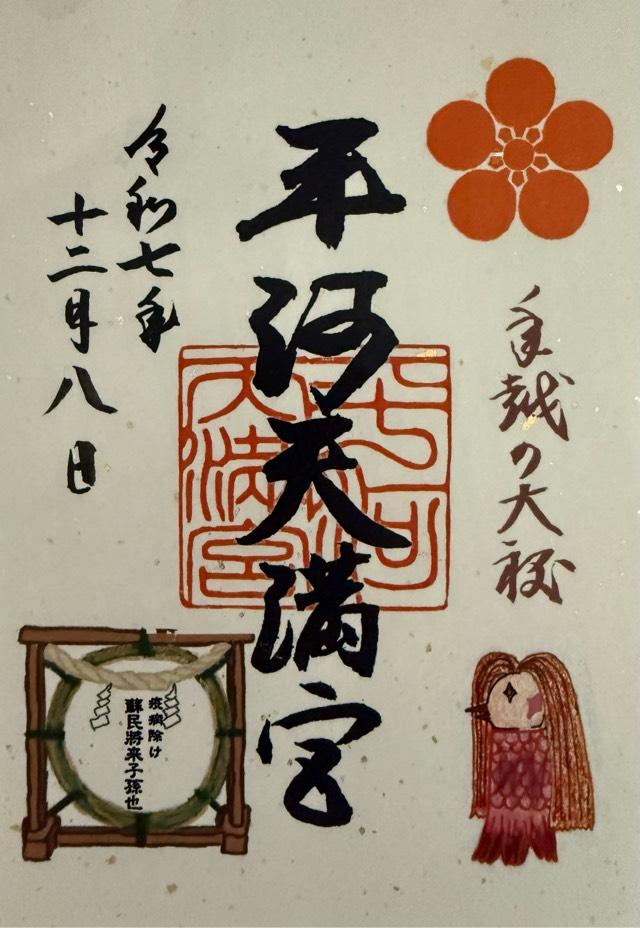 年越の大祓
平河天満宮
平河
天満宮
令和七年
十二月八日
疫病除け
蘇民将来子孫也